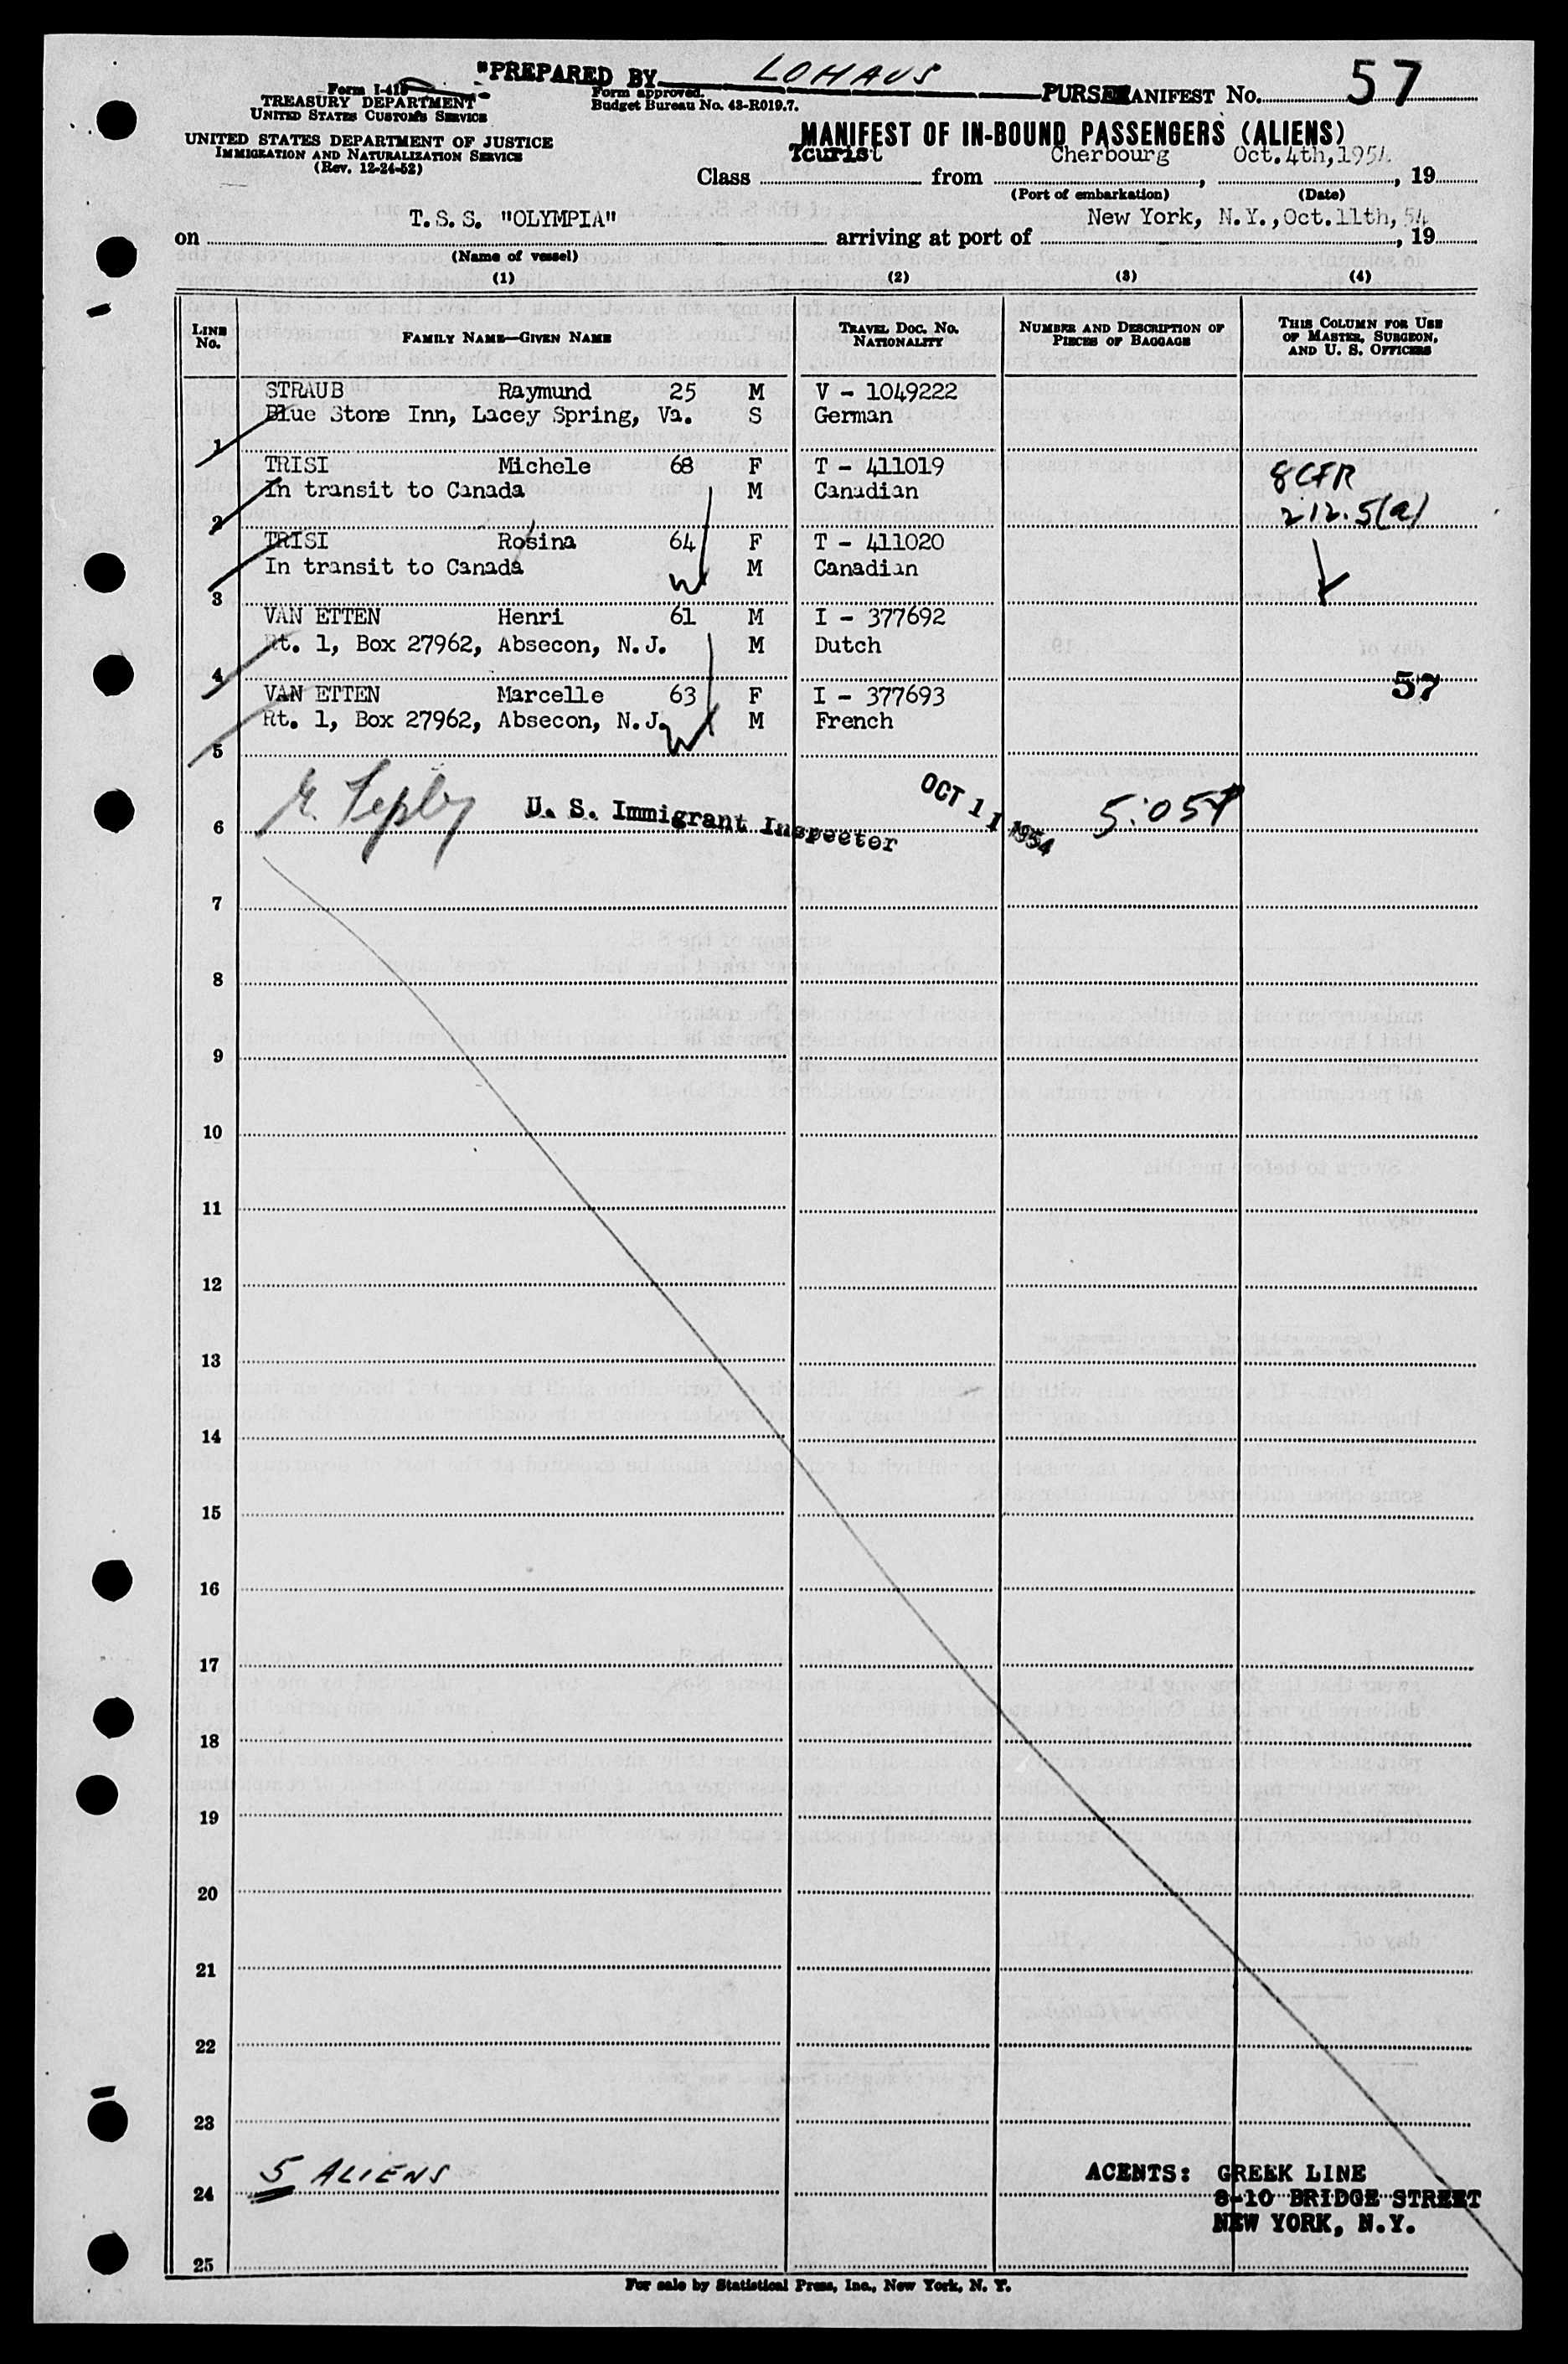 "PREPARED BY LOHAUS PURSER
Form I-418
TREASURY DEPARTMENT
UNITED STATES CUSTOMS SERVICE
UNITED STATES DEPARTMENT OF JUSTICE
IMMIGRATION AND NATURALIZATION SERVICE
(Rev. 12-24-52)
Form approved.
Budget Bureau No. 43-R019.7.
MANIFEST No. 57
MANIFEST OF IN-BOUND PASSENGERS (ALIENS)
Class Tourist from Cherbourg, Oct. 4th, 1954, 19
(Port of embarkation) (Date)
on T.S.S. "OLYMPIA" arriving at port of New York, N.Y., Oct. 11th, 54, 19
(Name of vessel)
(1) (2) (3) (4)
LINE No. FAMILY NAME—GIVEN NAME TRAVEL DOC. NO. NATIONALITY NUMBER AND DESCRIPTION OF PIECES OF BAGGAGE THIS COLUMN FOR USE OF MASTER, SURGEON, AND U. S. OFFICERS
STRAUB Raymund 25 M V - 1049222
1 Blue Stone Inn, Lacey Spring, Va. S German
TRISI Michele 68 F T - 411019 8 CFR
2 In transit to Canada M Canadian 212.5(a)
TRISI Rosina 64 F T - 411020
3 In transit to Canada M Canadian
VAN ETTEN Henri 61 M I - 377692
4 Rt. 1, Box 27962, Absecon, N.J. M Dutch
57
VAN ETTEN Marcelle 63 F I - 377693
5 Rt. 1, Box 27962, Absecon, N.J. M French
6 U. S. Immigrant Inspector OCT 11 1954
7
8
9
10
11
12
13
14
15
16
17
18
19
20
21
22
23
24 5 ALIENS
AGENTS: GREEK LINE
8-10 BRIDGE STREET
NEW YORK, N.Y.
25
For sale by Statistical Press, Inc., New York, N. Y.